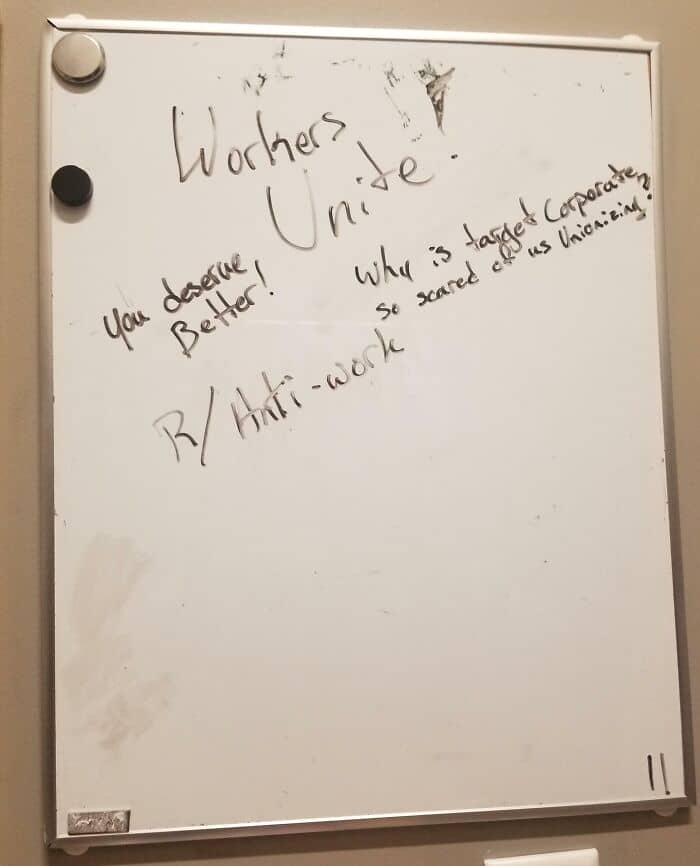 Workers
Unite!
you deserve
Better!
Why is target Corporate,
so scared of us Unionizing?
R/Anti-work